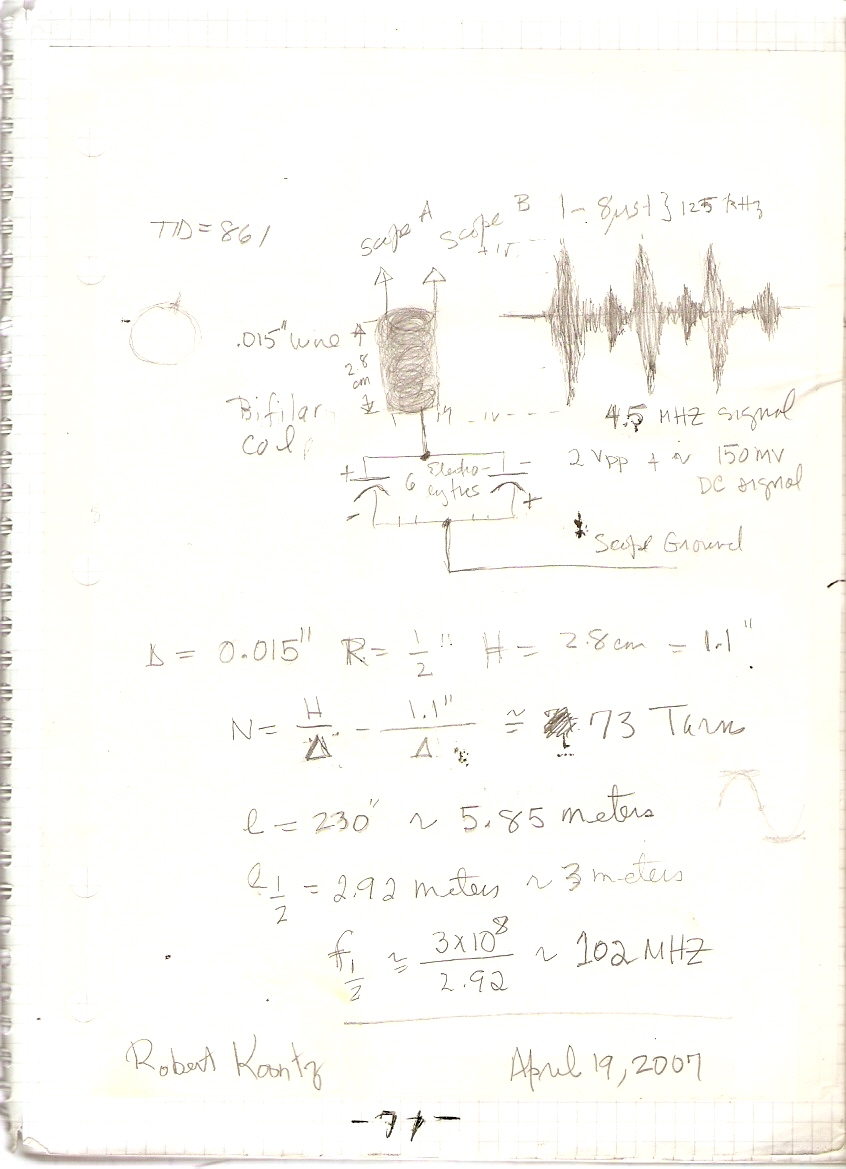 TID = 861
Scope A Scope B
1 - 8μs } 125 kHz
+1V
.015" wire
2.8 cm
Bifilar
coil
-1V
4.5 MHZ signal
+ 6 Electro- -
lytics
- +
2 Vpp + ~ 150 mv
DC signal
Scope Ground
Δ = 0.015" R = 1/2" H = 2.8 cm = 1.1"
N = H/Δ - 1.1"/Δ ≅ 73 Turns
l = 230" ~ 5.85 meters
l 1/2 = 2.92 meters ~ 3 meters
f 1/2 ≅ 3x10⁸/2.92 ~ 102 MHZ
Robert Koontz April 19, 2007